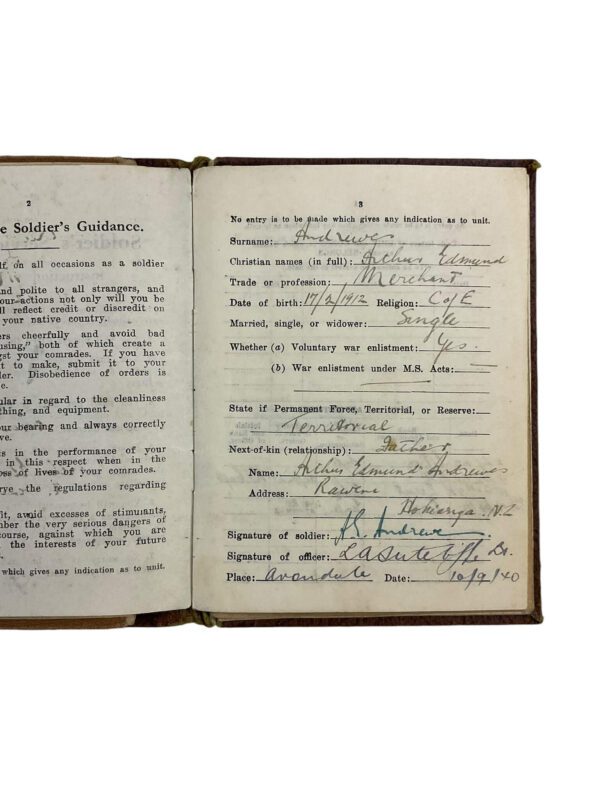 2
e Soldier's Guidance.
lf on all occasions as a soldier
nd polite to all strangers, and
our actions not only will you be
ll reflect credit or discredit on
your native country.
ers cheerfully and avoid bad
using," both of which create a
gst your comrades. If you have
t to make, submit it to your
der. Disobedience of orders is
e.
ular in regard to the cleanliness
thing, and equipment.
our bearing and always correctly
ve.
s in the performance of your
in this respect when in the
oss of lives of your comrades.
rve the regulations regarding
fit, avoid excesses of stimulants,
mber the very serious dangers of
course, against which you are
the interests of your future
which gives any indication as to unit.
3
No entry is to be made which gives any indication as to unit.
Surname: Andrewes
Christian names (in full): Arthur Edmund
Trade or profession: Merchant
Date of birth: 17/2/1912 Religion: C of E
Married, single, or widower: Single
Whether (a) Voluntary war enlistment: Yes.
(b) War enlistment under M.S. Acts:
State if Permanent Force, Territorial, or Reserve:
Territorial
Next-of-kin (relationship): Father
Name: Arthur Edmund Andrewes
Address: Rawene
Hokianga. N.Z
Signature of soldier: A.E. Andrewes
Signature of officer:
Place: Avondale Date: 10/9/40